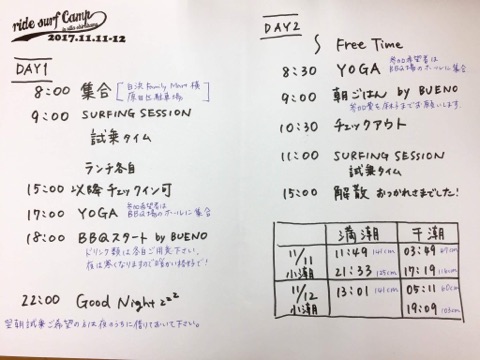 ride surf Camp
2017.11.11-12
DAY1
8:00 集合
白浜 Family Mart 横
原田区駐車場
9:00 SURFING SESSION
試乗タイム
ランチ各自
15:00 以降チェックイン可
17:00 YOGA
参加希望者は
BBQ場のホールに集合
18:00 BBQスタート by BUENO
ドリンク類は各自ご用意下さい。
夜は寒くなりますので暖かい格好で!
22:00 Good Night zzz
翌朝試乗ご希望の方は夜のうちに借りておいて下さい。
DAY2
Free Time
8:30 YOGA
参加希望者は
BBQ場のホールに集合
9:00 朝ごはん by BUENO
までお願いします
10:30 チェックアウト
11:00 SURFING SESSION
試乗タイム
15:00 解散 おつかれさまでした!
満潮 干潮
11/11 小潮 11:49 141cm 03:49 47cm
21:33 125cm 17:19 116cm
11/12 小潮 13:01 141cm 05:11 60cm
19:09 103cm